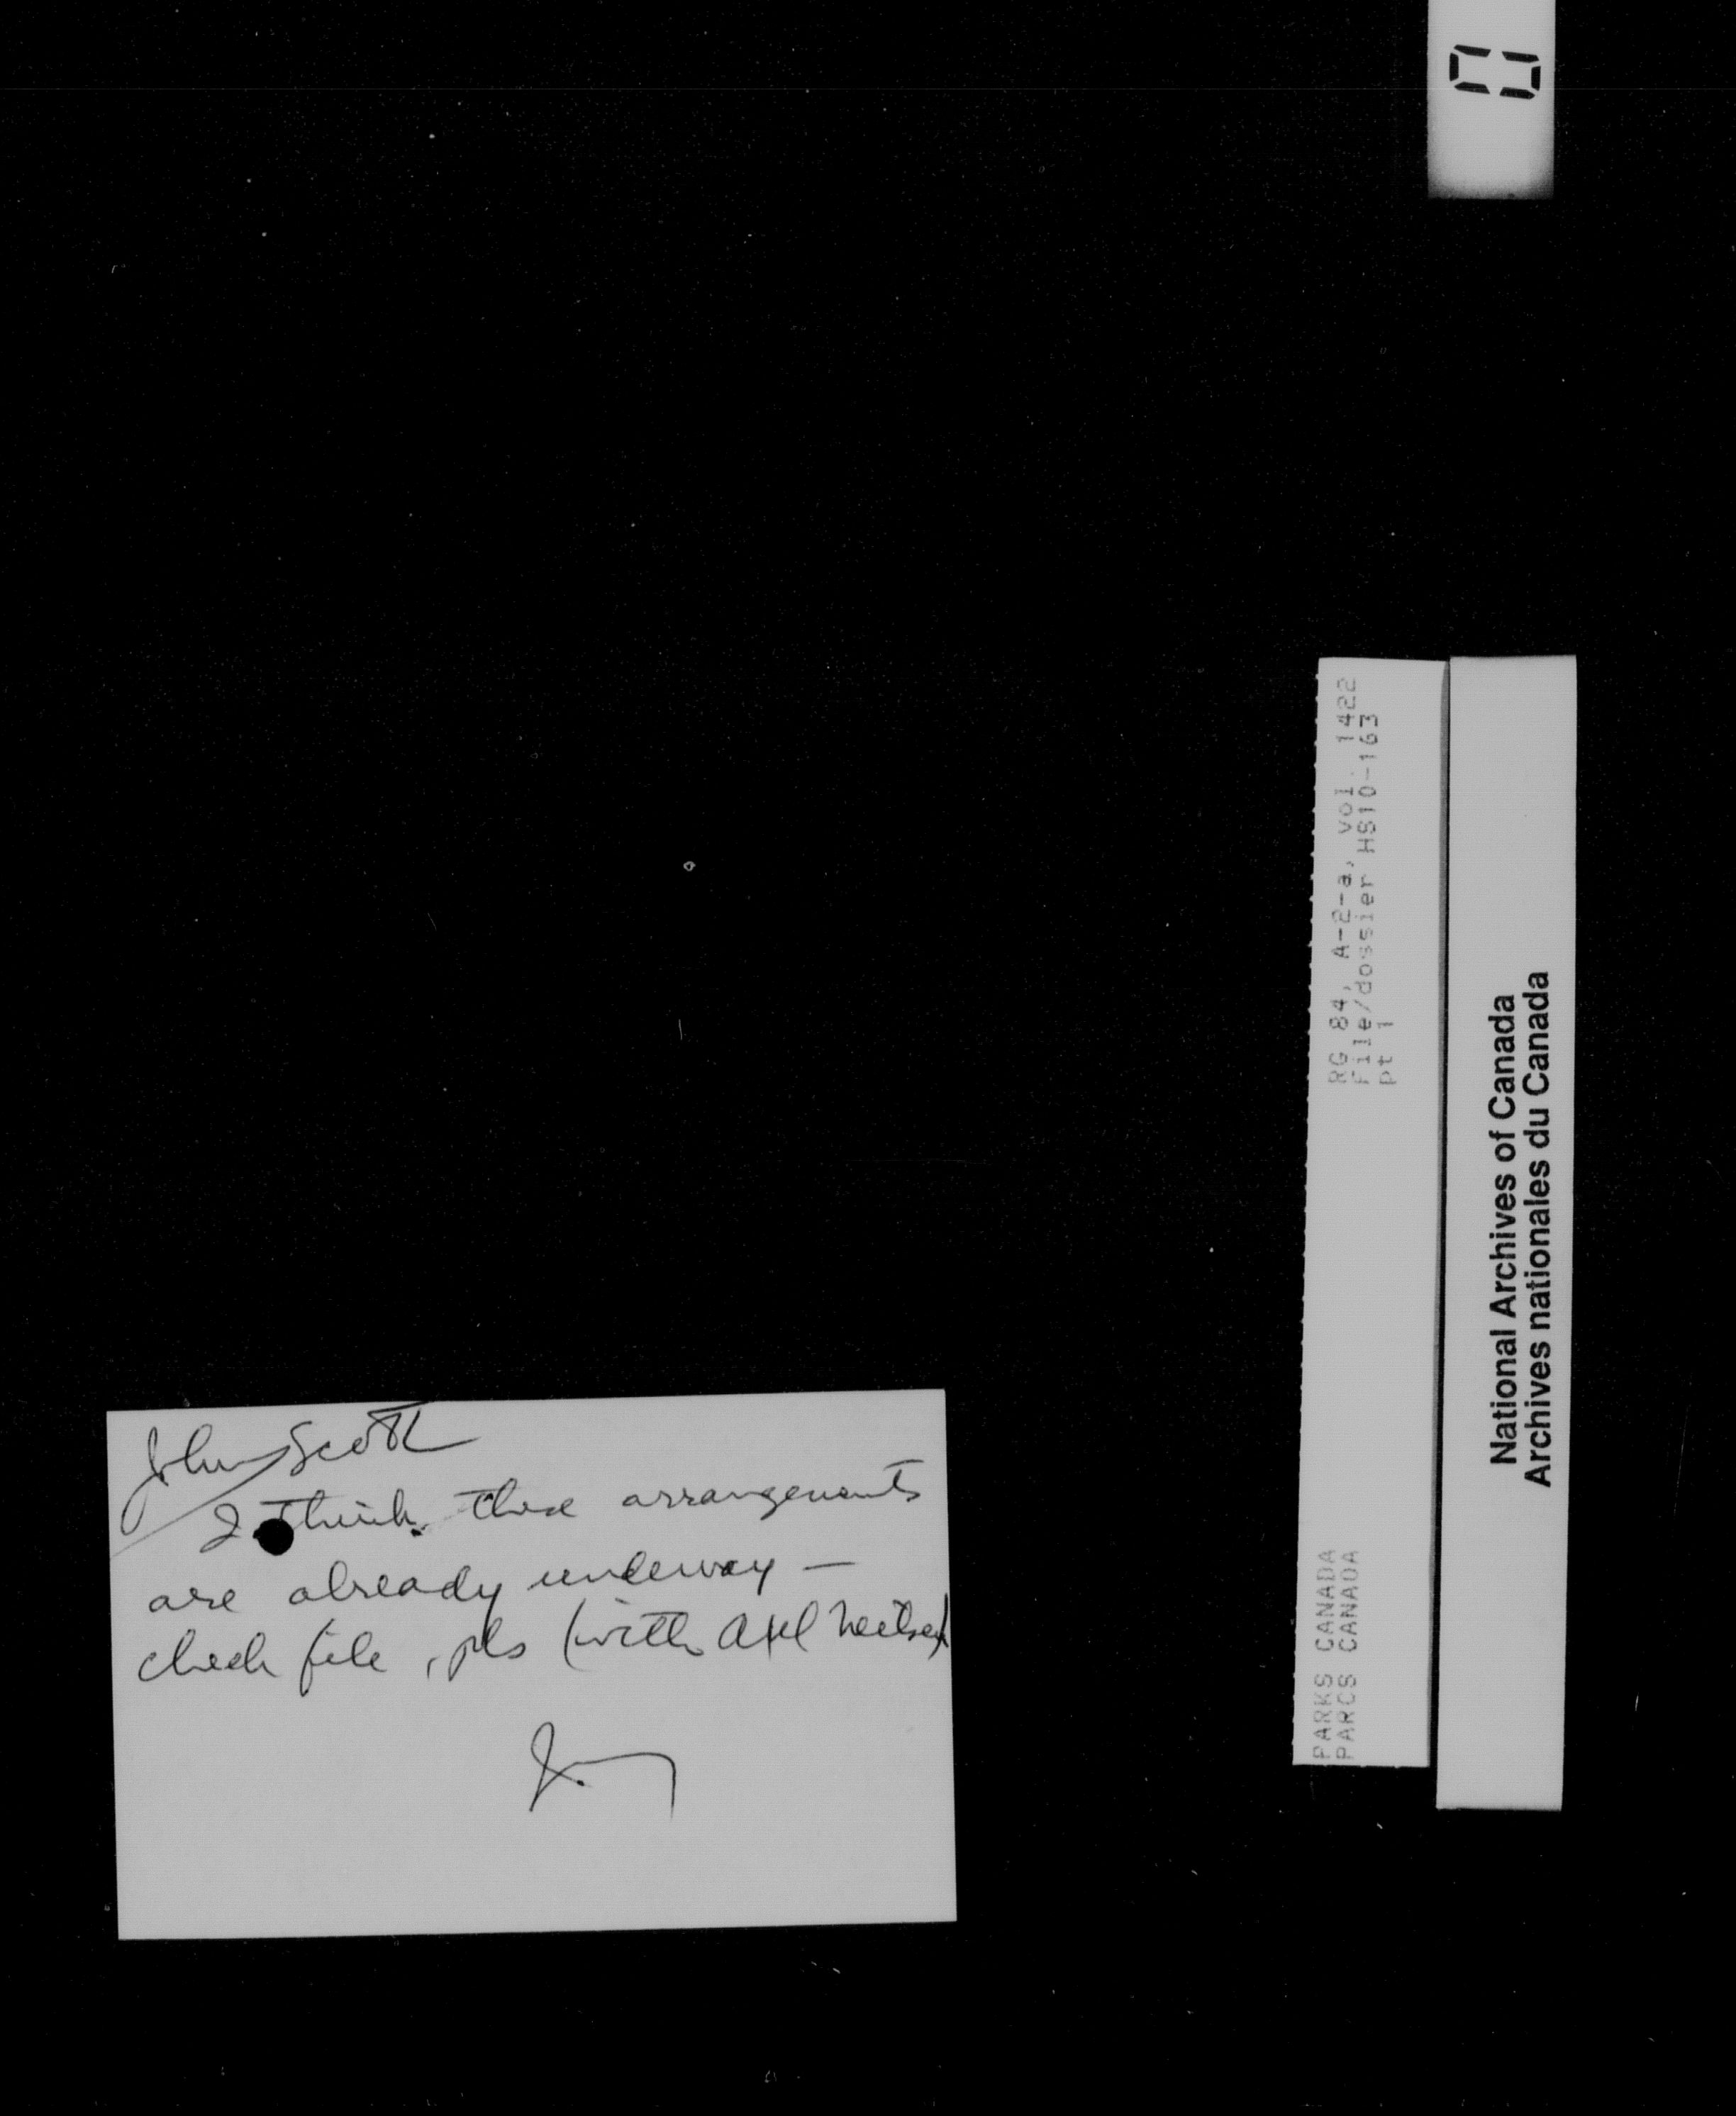 0
John Scott
I think these arrangements
are already underway —
check file, pls (with Axel
RG 84, A-2-a, vol. 1422
File/dossier HS10-163
pt 1
PARKS CANADA
PARCS CANADA
National Archives of Canada
Archives nationales du Canada